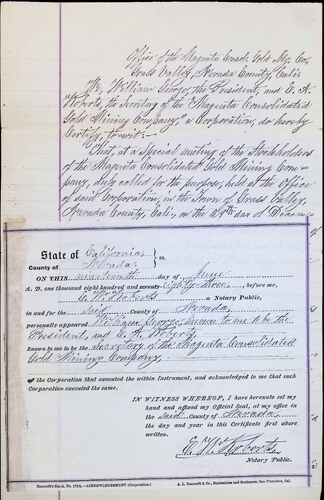 Office of the Magenta Consd. Gold Mg. Co.
Grass Valley, Nevada County, Cala.
We, William George, the President, and E. A.
Roberts, the Secretary of the "Magenta Consolidated
Gold Mining Company," a Corporation, do hereby
Certify, to wit:—
That, at a Special meeting of the Stockholders
of the Magenta Consolidated Gold Mining Com-
pany, duly called for the purpose, held at the Office
of said Corporation, in the Town of Grass Valley,
Nevada County, Cala. on the 29th day of
State of California, ss.
County of Nevada.
ON THIS nineteenth day of June
A. D. one thousand eight hundred and seventy eighty three, before me,
a Notary Public,
in and for the said County of Nevada,
personally appeared William George, known to me to be the
President, and E. A. Roberts
known to me to be the Secretary of the Magenta Consolidated
Gold Mining Company,
of the Corporation that executed the within Instrument, and acknowledged to me that such
Corporation executed the same.
IN WITNESS WHEREOF, I have hereunto set my
hand and affixed my Official Seal, at my office in
the said County of Nevada
the day and year in this Certificate first above
written.
Notary Public.